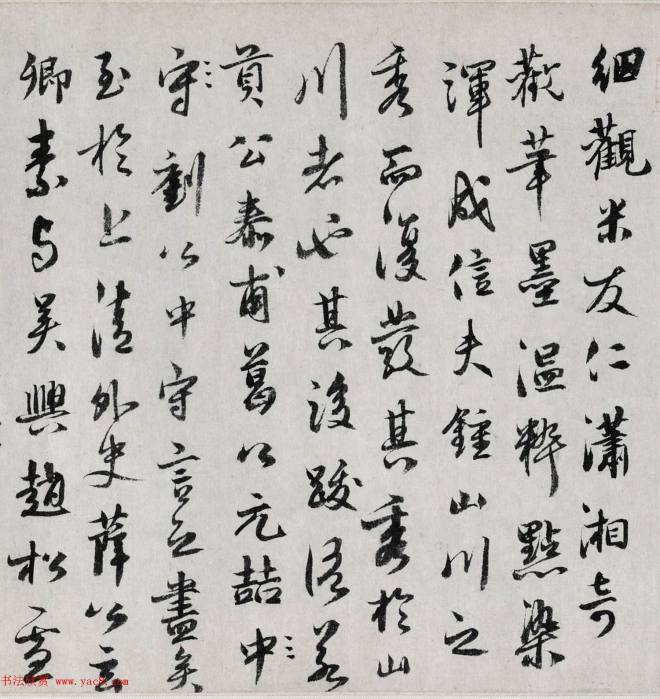 細觀米友仁瀟湘奇
觀筆墨溫粹點染
渾成信夫鍾山川之
秀而復發其秀於山
川者也其後跋語若
貢公泰甫葛公元喆中
守劉公中守言之盡矣
至於上清外史薛公玄
卿素与吳興趙松雪
书法欣赏 www.yac8.com